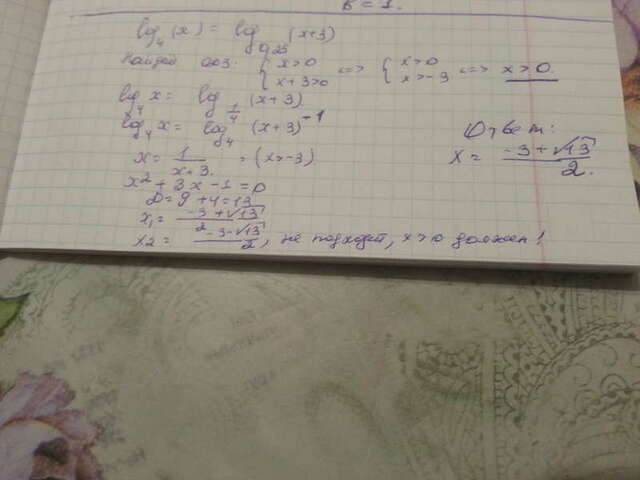 в = 1.
log₄(x) = log₀,₂₅(x+3)
Найдём ООЗ: { x>0 x+3>0 <=> { x>0 x>-3 <=> x>0.
log₄ x = log_{1/4} (x+3)
log₄ x = log₄ (x+3)⁻¹
x = 1/(x+3) = (x>-3)
x² + 3x - 1 = 0
D = 9 + 4 = 13
x₁ = (-3+√13)/2
x₂ = (-3-√13)/2, не подходит, x>0 должен!
Ответ:
x = (-3+√13)/2.